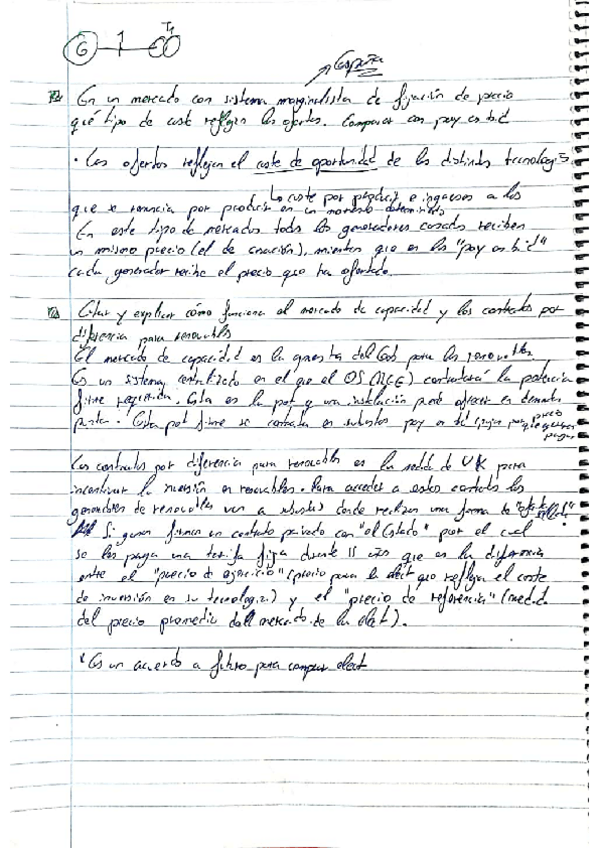 G T1
España
En un mercado con sistema marginalista de fijación de precio
qué tipo de coste reflejan las ofertas. Comparar con pay as bid
· Las ofertas reflejan el coste de oportunidad de las distintas tecnologías
↳ coste por producir e ingresos a los
que se renuncia por producir en un momento determinado
En este tipo de mercados todos los generadores casados reciben
un mismo precio (el de casación), mientras que en los "pay as bid"
cada generador recibe el precio que ha ofertado.
Citar y explicar cómo funciona el mercado de capacidad y los contratos por
diferencia para renovables
El mercado de capacidad es la del Gob para las renovables.
Es un sistema centralizado en el que el OS contratará la potencia
firme requerida. Esta es la pot q una instalación puede ofrecer en demanda
punta. Esta pot firme se contrata en subastas pay as bid
precio
que quieren
pagar
Los contratos por diferencia para renovables es la medida de UK para
incentivar la inversión en renovables. Para acceder a estos contratos los
generadores de renovables van a subastas donde realizan una forma de
Si ganan firman un contrato privado con "el Estado" por el cual
se les paga una tarifa fija durante 15 años que es la diferencia
entre el "precio de ejercicio" (precio para la elect que refleja el coste
de inversión en su tecnología) y el "precio de referencia" (medida
del precio promedio del mercado de la elect).
*Es un acuerdo a futuro para comprar elect